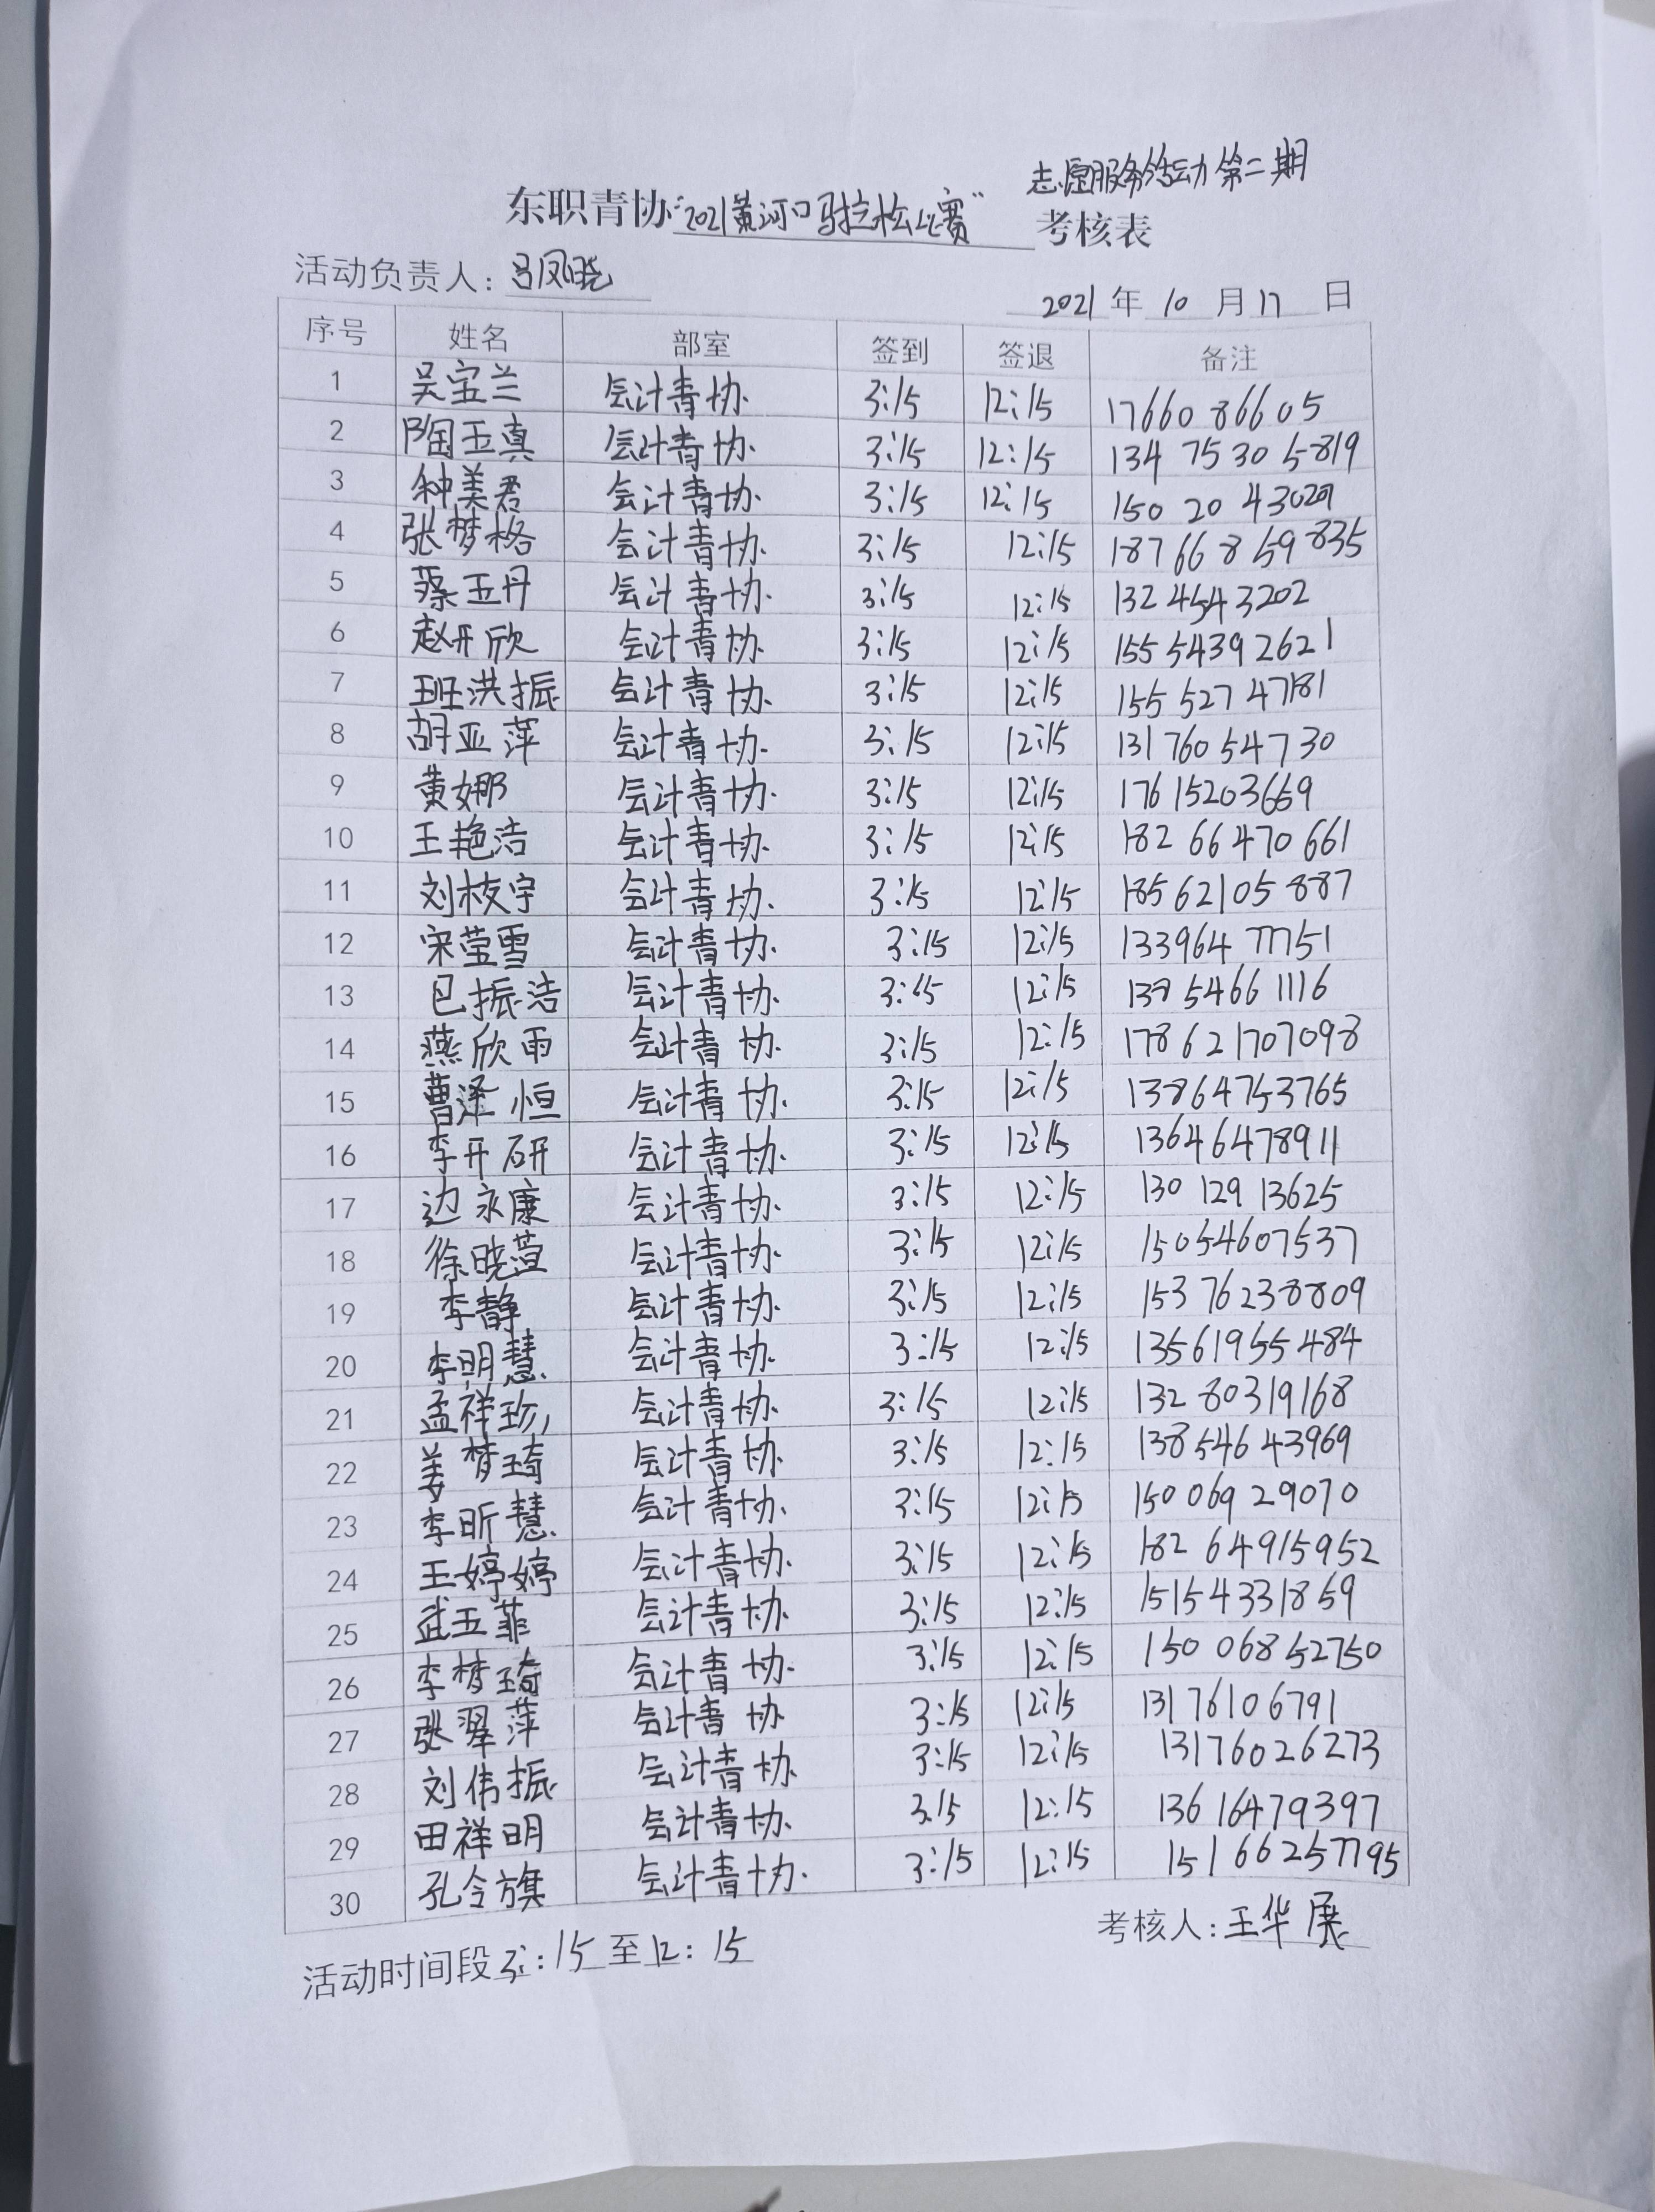 志愿服务活动第二期
东职青协“2021黄河口马拉松比赛”考核表
活动负责人：吕凤晓
2021年10月17日
序号 姓名 部室 签到 签退 备注
1 吴宝兰 会计青协 3:15 12:15 17660 86605
2 陶玉真 会计青协 3:15 12:15 134 75 30 5819
3 钟美君 会计青协 3:15 12:15 150 20 43029
4 张梦格 会计青协 3:15 12:15 187 66 8 59 835
5 蔡玉丹 会计青协 3:15 12:15 132 4543202
6 赵开欣 会计青协 3:15 12:15 155 5439 2621
7 班洪振 会计青协 3:15 12:15 155 527 47181
8 胡亚萍 会计青协 3:15 12:15 131 760 54730
9 黄娜 会计青协 3:15 12:15 176 15203669
10 王艳洁 会计青协 3:15 12:15 182 66 470 661
11 刘枝宇 会计青协 3:15 12:15 18562105887
12 宋莹雪 会计青协 3:15 12:15 133964 77751
13 巴振洁 会计青协 3:15 12:15 5466 1116
14 燕欣雨 会计青协 3:15 12:15 178 621707098
15 曹泽恒 会计青协 3:15 12:15 13864753765
16 李开研 会计青协 3:15 12:15 13646478911
17 边永康 会计青协 3:15 12:15 130 129 13625
18 徐晓萱 会计青协 3:15 12:15 15054607537
19 李静 会计青协 3:15 12:15 153 76238809
20 李明慧 会计青协 3:15 12:15 13561955484
21 孟祥珍 会计青协 3:15 12:15 132 80319168
22 姜梦琦 会计青协 3:15 12:15 13854643969
23 李昕慧 会计青协 3:15 12:15 150 069 29070
24 王婷婷 会计青协 3:15 12:15 182 64915952
25 武玉菲 会计青协 3:15 12:15 15154331859
26 李梦琦 会计青协 3:15 12:15 150 06852750
27 张翠萍 会计青协 3:15 12:15 13176106791
28 刘伟振 会计青协 3:15 12:15 13176026273
29 田祥明 会计青协 3.15 12:15 136 16479397
30 孔令旗 会计青协 3:15 12:15 151 66257795
活动时间段3:15至12:15
考核人：王华展